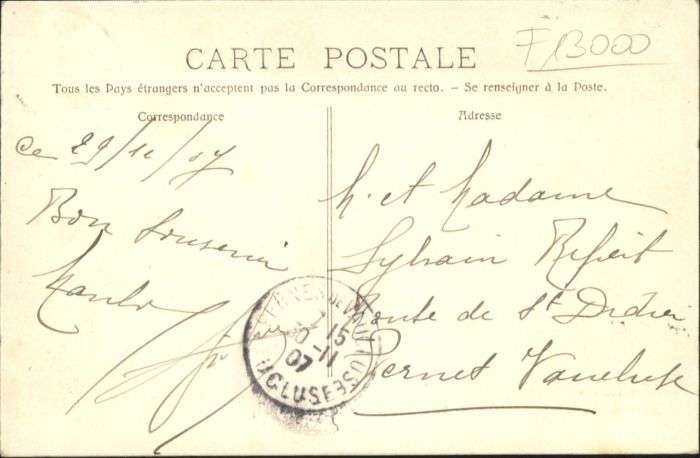 F 13000
CARTE POSTALE
Tous les Pays étrangers n'acceptent pas la Correspondance au recto. - Se renseigner à la Poste.
Correspondance
Ce 29/11/07
Bon Souvenir
Adresse
M. et Madame
Sylvain
Route de St Didier
Pernes Vaucluse
PERNES DE VAUCLUSE
15
07-11
VAUCLUSE